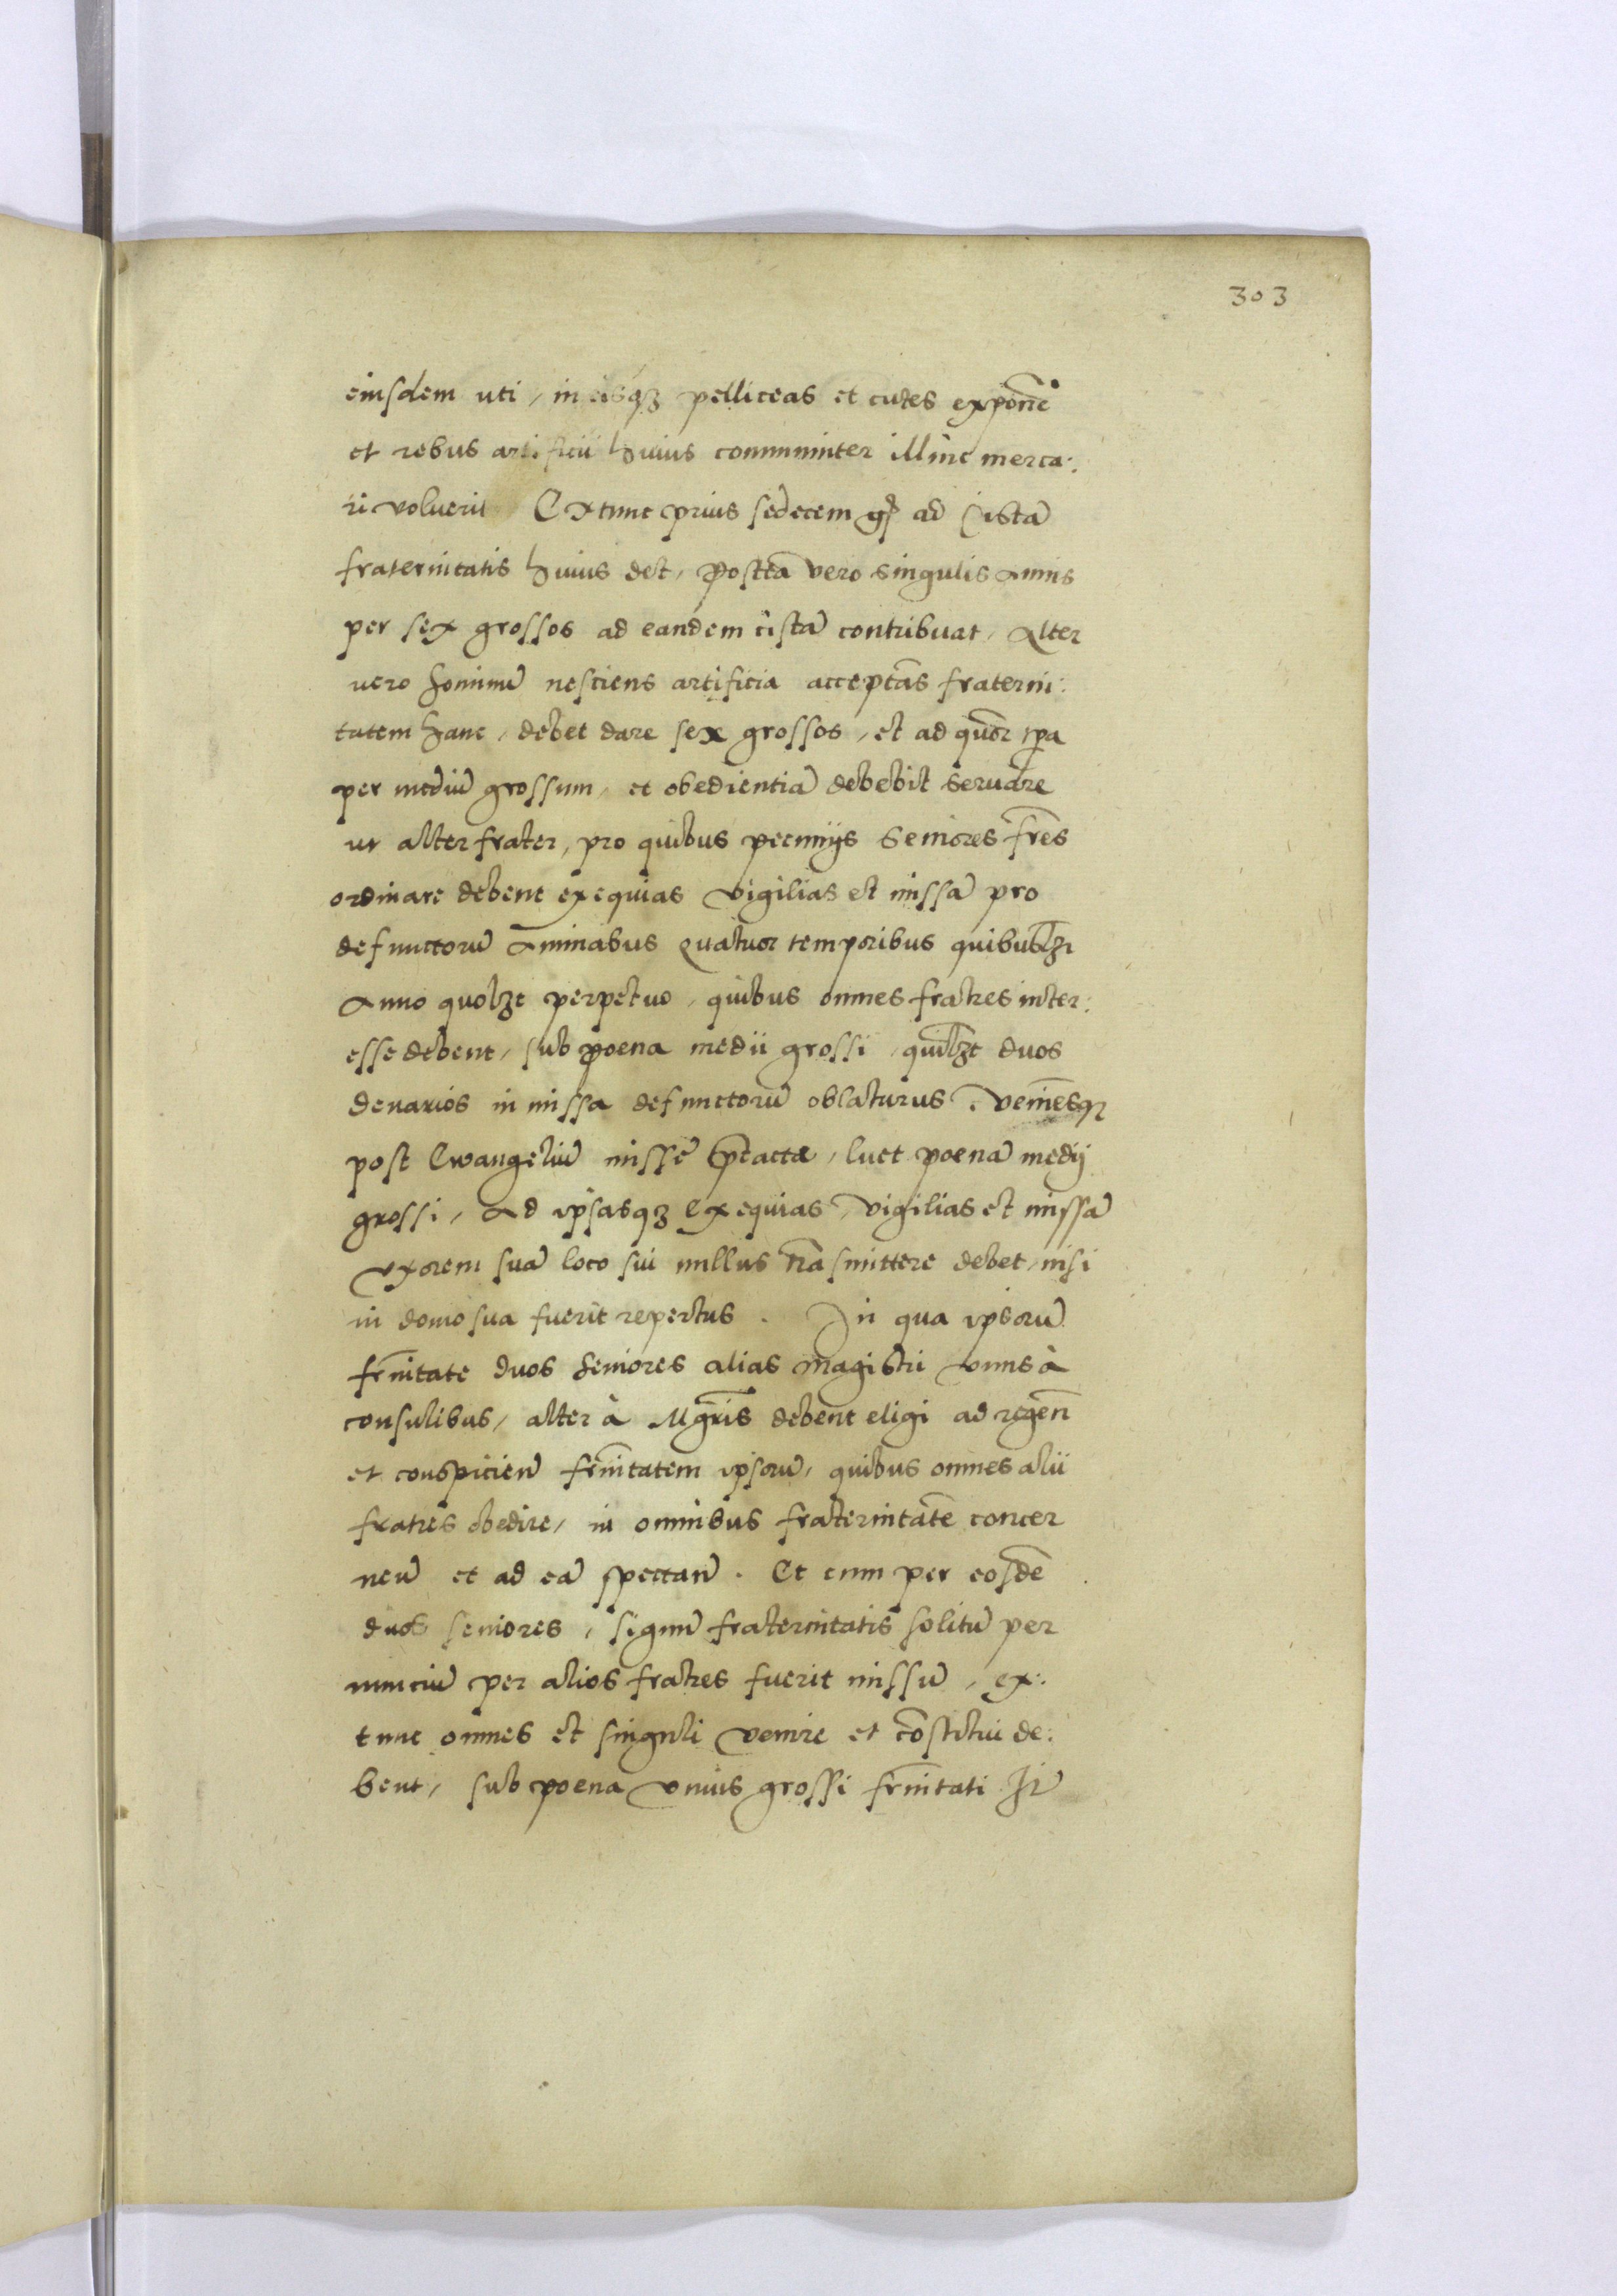 303
eiusdem uti, in eisq3 pelliceas et cutes exponē
et rebus artificii huius communiter illinc merca:
ri voluerit Extunc prius sedecem gſ ad Cistā
fraternitatis huius det, Posteā vero singulis Annis
per sex grossos ad eandem cistā contribuat, Alter
vero hominū nesciens artificia acceptās fraterni:
tatem hanc, debet dare sex grossos, et ad quōr tp̄a
per mediū grossum, et obedientiā debebit servare
ut alter frater, pro quibus pecuniis Seniores frēs
ordinare debent exequias vigilias et missā pro
defunctorū Animabus Quatuor temporibus quibusl3t
Anno quol3t perpetuo, quibus omnes fratres inter:
esse debent, sub poena medii grossi, quil3t duos
denarios in missa defunctorū oblaturus. Veniēsq3
post Ewangeliū misse ptactæ, luet poenā medij
grossi, Ad ipsasq3 Exequias, vigilias et missā
Uxorem suā loco sui nullus trāsmittere debet, nisi
in domo sua fuerit repertus. In qua ipsorū
frn̄itate duos seniores alias magistri unus à
consulibus, alter à Mgr̄is debent eligi ad regen̄
et conspicien̄ frn̄itatem ipsorū, quibus omnes alii
fratres obedire, in omnibus fraternitatē concer
nen̄ et ad eā spectan̄. Et cum per eosdē
duos seniores, signū fraternitatis solitū per
nunciū per alios fratres fuerit missū, ex:
tunc omnes et singuli venire et cōstitui de:
bent, sub poena unius grossi frn̄itati